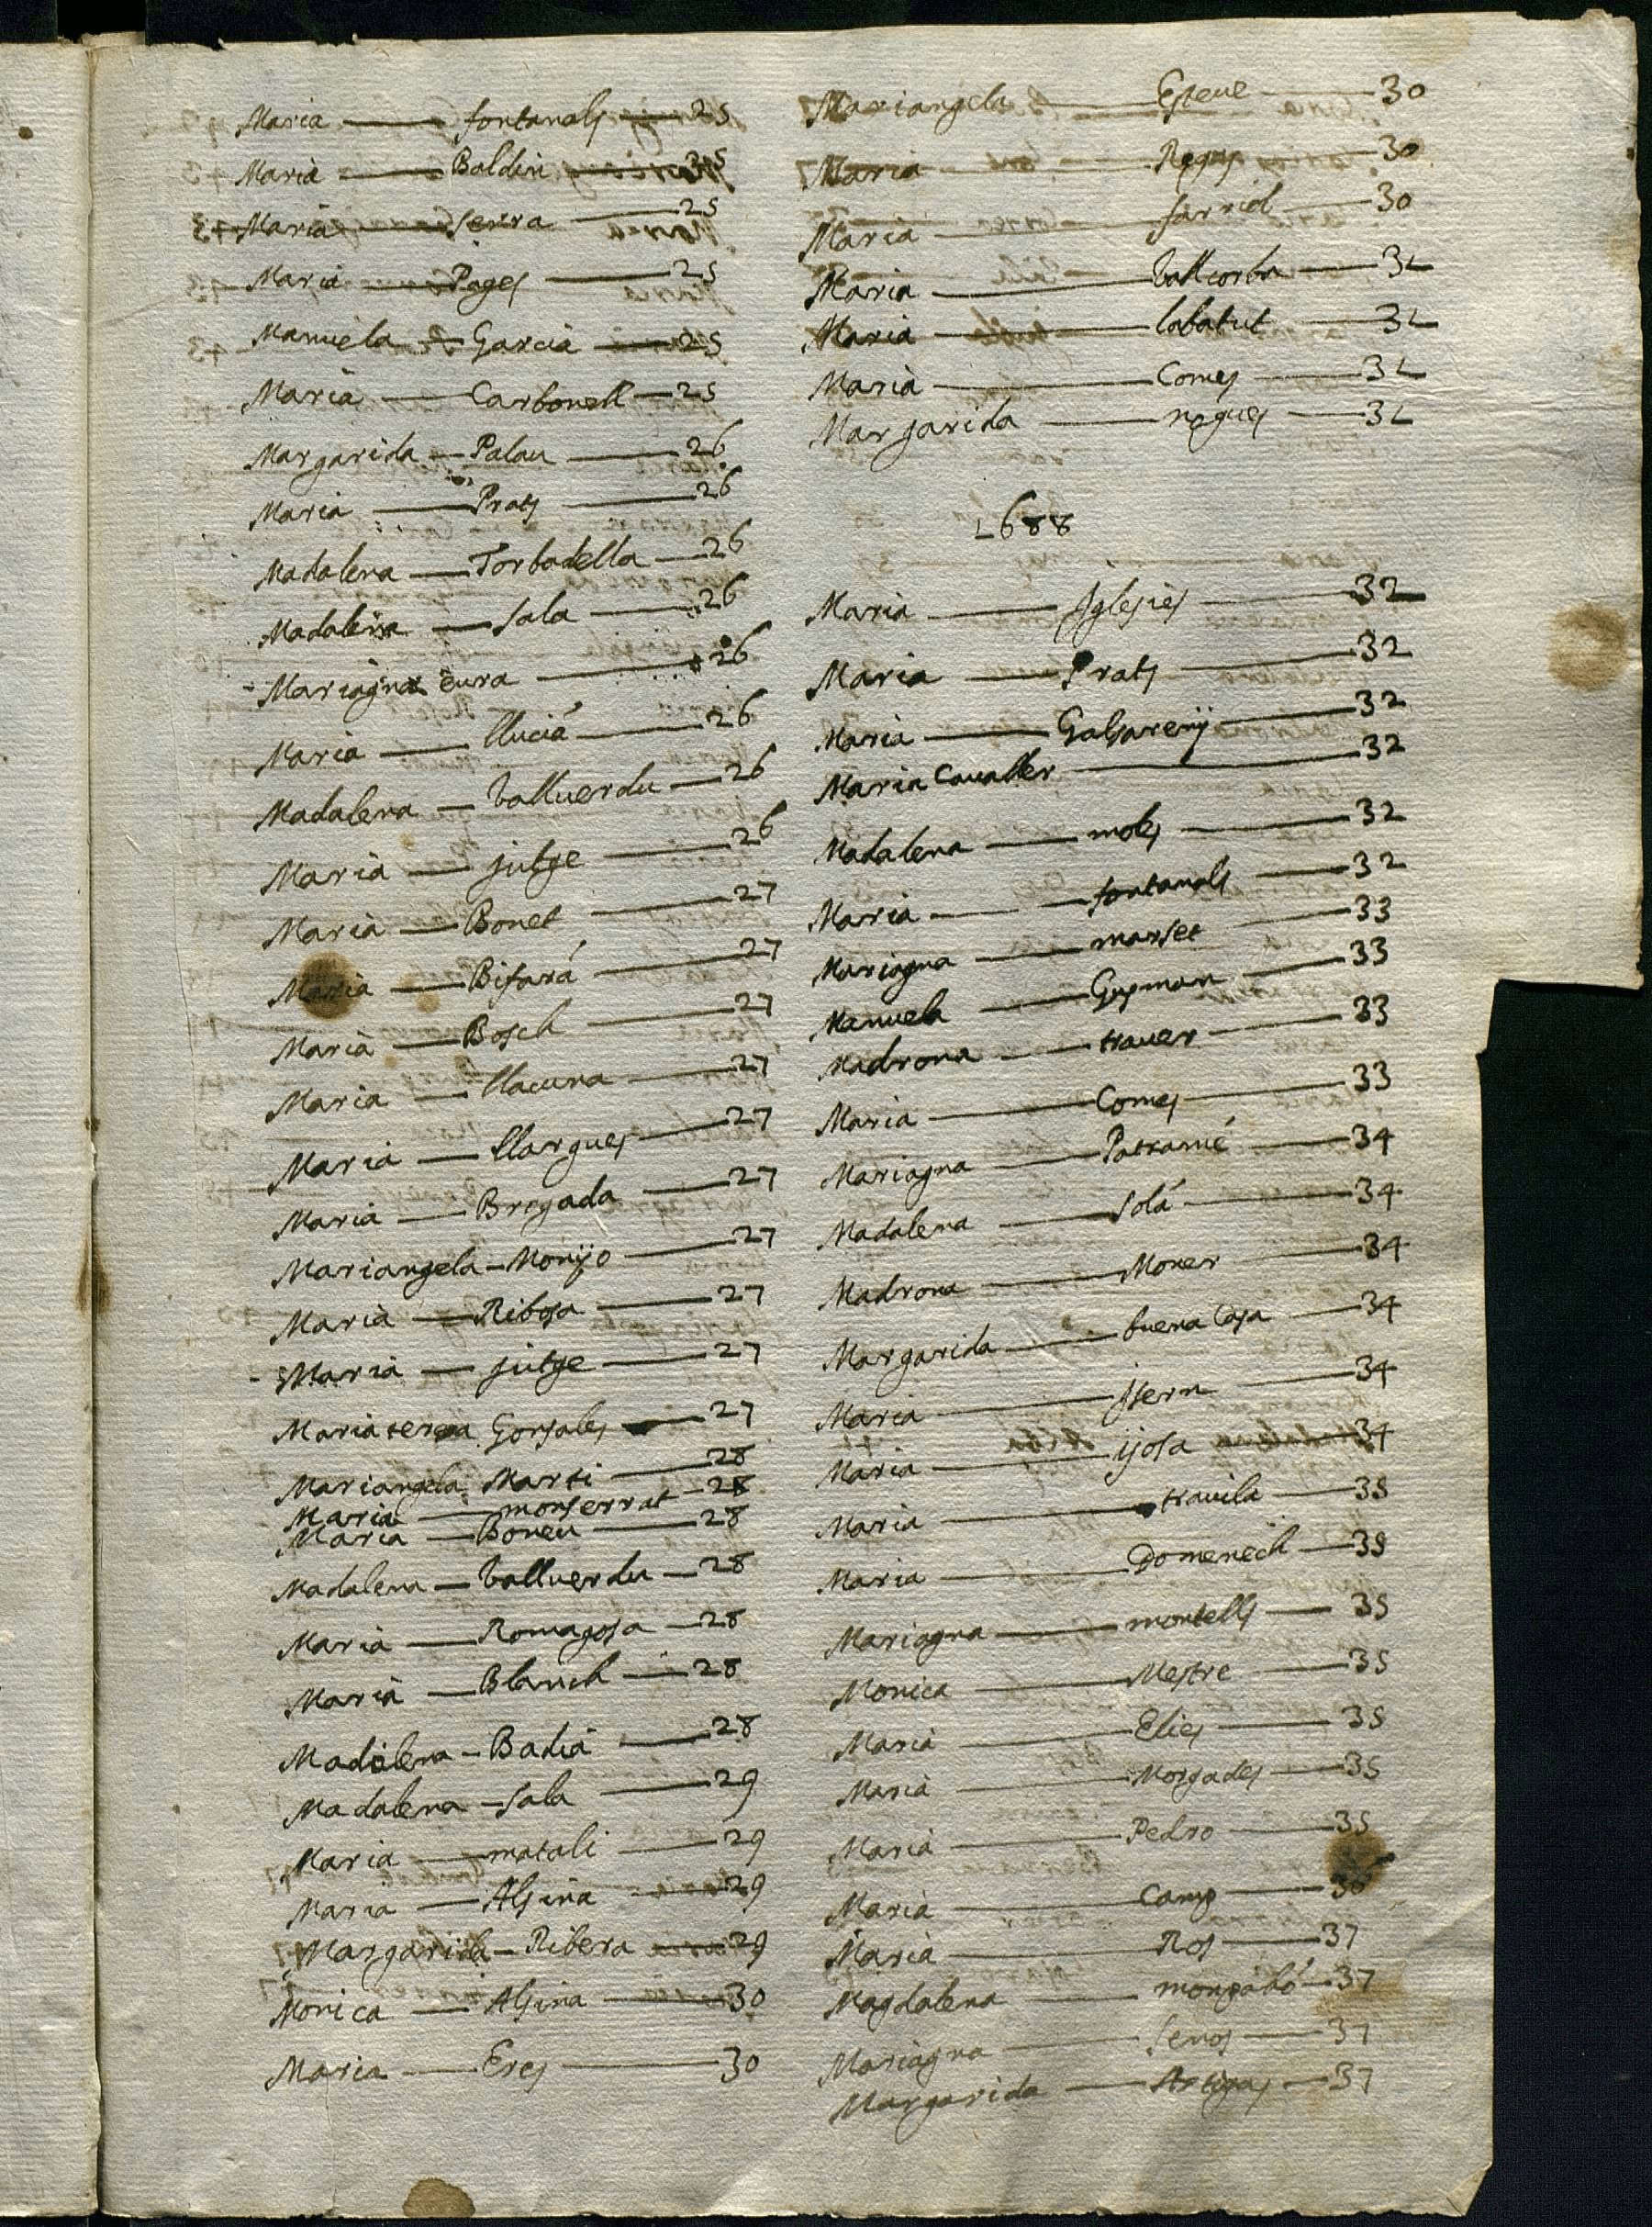 Maria fontanals 25
Maria Boldin 25
Maria serra 25
Maria Pages 25
Manuela Garcia 25
Maria Carbonell 25
Margarida Palau 26
Maria Prats 26
Madalena Torbadella 26
Madalena sala 26
Mariagna cura 26
Maria llucià 26
Madalena Valluerdu 26
Maria jutge 26
Maria Bonet 27
Maria Bifará 27
Maria Bosch 27
Maria llacuna 27
Maria llargues 27
Maria Brogada 27
Mariangela Monjo 27
Maria Ribosa 27
Maria jutge 27
Maria teresa Gonsales 27
Mariangela Marti 28
Maria monserrat 28
Maria Boneu 28
Madalena Valluerdu 28
Maria Romagosa 28
Maria Blanch 28
Madalena Badia 28
Madalena sala 29
Maria matali 29
Maria Alsina 29
Margarida Ribera 29
Monica Alsina 30
Maria Eres 30
Mariangela Esteue 30
Maria 30
Maria sarriol 30
Maria Vallcorba 31
Maria labatut 31
Maria Comes 31
Margarida nogues 31
1688
Maria Iglesies 32
Maria Prats 32
Maria Galsarenÿ 32
Maria Caualler 32
Madalena moles 32
Maria fontanals 32
Mariagna marset 33
Manuela Gusman 33
Madrona trauer 33
Maria Comes 33
Mariagna Patramé 34
Madalena solá 34
Madrona Moner 34
Margarida buena Casa 34
Maria jsern 34
Maria 34
Maria trauila 35
Maria Domenech 35
Mariagna montells 35
Monica Mestre 35
Maria Elies 35
Maria Morgades 35
Maria Pedro 35
Maria Camp 36
Maria Ros 37
Magdalena monpabó 37
Mariagna senos 37
Margarida Artigas 37